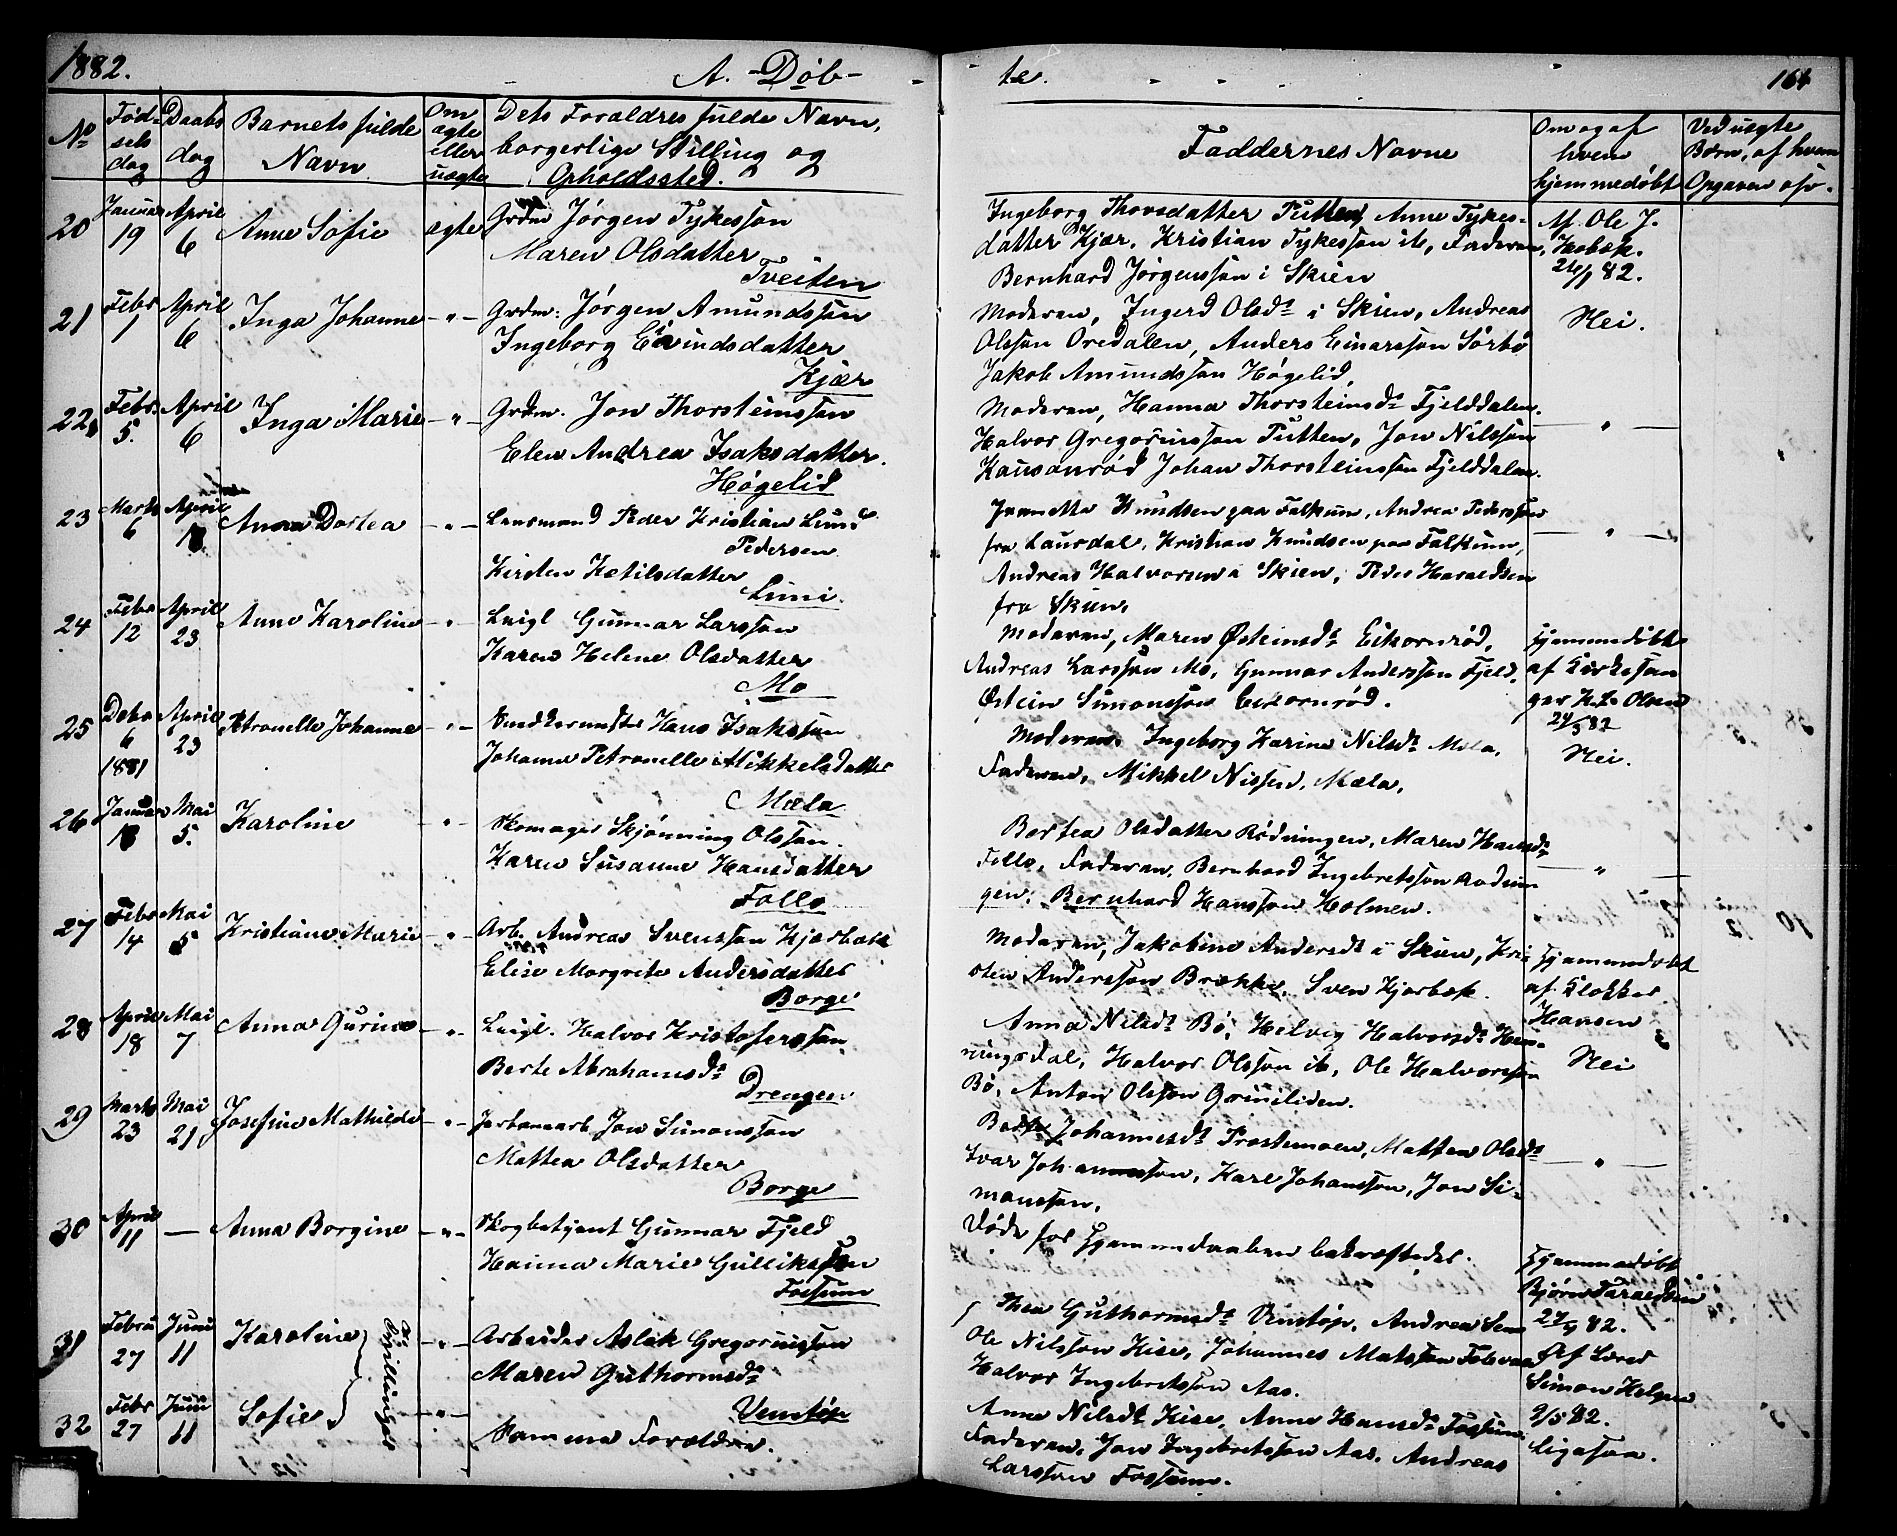 1882.
A. Døb-
te.
164
No
Fød-
sels
dag
Daabs
dag
Barnets fulde
Navn
Om
ægte
eller
uægte
Dets Forældres fulde Navn,
borgerlige Stilling og
Opholdssted.
Faddernes Navne
Om og af
hvem
hjemmedøbt
Ved uægte
Børn, af hvem
Opgaven osv.
20
Januar
19
April
6
Anne Sofie
ægte
Grdm Jørgen Tykesson
Maren Olsdatter
Tveiten
Ingeborg Thovsdatter Putten, Anne Tykes-
datter Kjær, Kristian Tykesson ib, Faderen,
Bernhard Jörgensson i Skien
Af Ole J.
Hobæk.
82.
21
Febr
1
April
6
Inga Johanne
-"-
Grdm: Jörgen Amundsson
Ingeborg Eivindsdatter
Kjær
Moderen, Ingerd Olsdr i Skien, Andreas
Olsson Oredalen, Anders Einarsson Sörbö
Jakob Amundsson Høgelid,
Nei.
22
Febr
5.
April
6
Inga Marie
-"-
Grdm. Jon Thorsteinsson
Elen Andrea Isaksdatter.
Høgelid
Moderen, Hanna Thorsteinsdr Fjelddalen.
Halvor Gregoriusson Putten, Jon Nilsson
Kausanrød Johan Thorsteinsson Fjelddalen.
-"-
23
Marts
6
April
Anna Dortea
-"-
Lensmand Peder Kristian Lund
Pedersen
Kirsten Ketilsdatter
Limi
Knudsen paa Falkum, Andrea Pedersson
fra Laurdal, Kristian Knudsen paa Falkum,
Andreas Halvorsen i Skien, Peder Haraldsen
fra Skien,
-"-
24
Febr
12
April
23
Anne Karoline
-"-
Leigl Gunnar Larsson
Karen Helene Olsdatter
Mo
Moderen, Maren Østeinsdr Eikornrød,
Andreas Larsson Mo, Gunnar Andersson Fjeld,
Østein Simonsson Eikornrød.
Hjemmedøbt
af Kirkesan
ger Olsen
82
25
Debr
6
1881
April
23
Petronelle Johanne
-"-
Hans Isaksson
Johanne Petronelle Mikkelsdatter
Mæla
Moderen, Ingeborg Karine Nilsdr Mæla,
Faderen, Mikkel Nissen, Mæla,
Nei.
26
Januar
18
Mai
5.
Karoline
-"-
Skomager Skjönning Olsson.
Karen Susanne Hansdatter
Follo
Bertea Olsdatter Rödningen, Maren Hansdr
Follo, Faderen, Bernhard Ingebretsson Rødnin
gen, Bernhard Hansson Holmen.
-"-
27
Febr
14
Mai
5
Kristiane Marie
-"-
Arb. Andreas Svensson Kjærbæk
Elise Margrete Andersdatter
Borge
Moderen, Jakobine Andersdr i Skien, Kri
sten Andersson Brække, Sven Kjerbæk.
Hjemmedøbt
af Klokker
Hansen
28
April
18
Mai
7
Anna Gurine
-"-
Leigl. Halvor Kristofersson
Berte Abrahamsdr
Drengen
Anna Nilsdr Bö, Helvig Halvorsdr Hen-
ningsdal, Halvor Olsson ib, Ole Halvorsson
Bö, Anton Olsson Grinilien.
Nei
29
Marts
23
Mai
21
Josefine Mathilde
-"-
Jerbanearb Jon Simonsson
Mattea Olsdatter
Borge
Berte Johannesdr Prestemoen, Mattea Olsdr
Ivar Johannesson, Karl Johansson, Jon Si-
monsson,
-"-
30
April
11
—
Anna Borgine
-"-
Skogbetjent Gunnar Fjeld
Hanna Marie Gulliksson
Fossum
Døde før Hjemmedaaben bekræftedes.
Hjemmedøbt
Bjørn Taraldsen
82.
31
Februar
27
Juni
11
Karoline
Tvillinger
-"-
Arbeider Aslak Gregoriusson
Maren Guthormsdr
Venstøp
Thea Guthormsdr Venstøp, Andrea
Ole Nilsson Kise, Johannes Matsson
Halvor Ingebretsson Aas.
Af Lærer
Simon Helgen
9/5 82.
32
Febr
27
Juni
11
Sofie
-"-
Samme Forældre.
Anne Nilsdr Kise, Anne Hansdr Fossum,
Faderen, Jon Ingebretsson Aas, Andreas
Larsson Fossum.
Ligesaa.